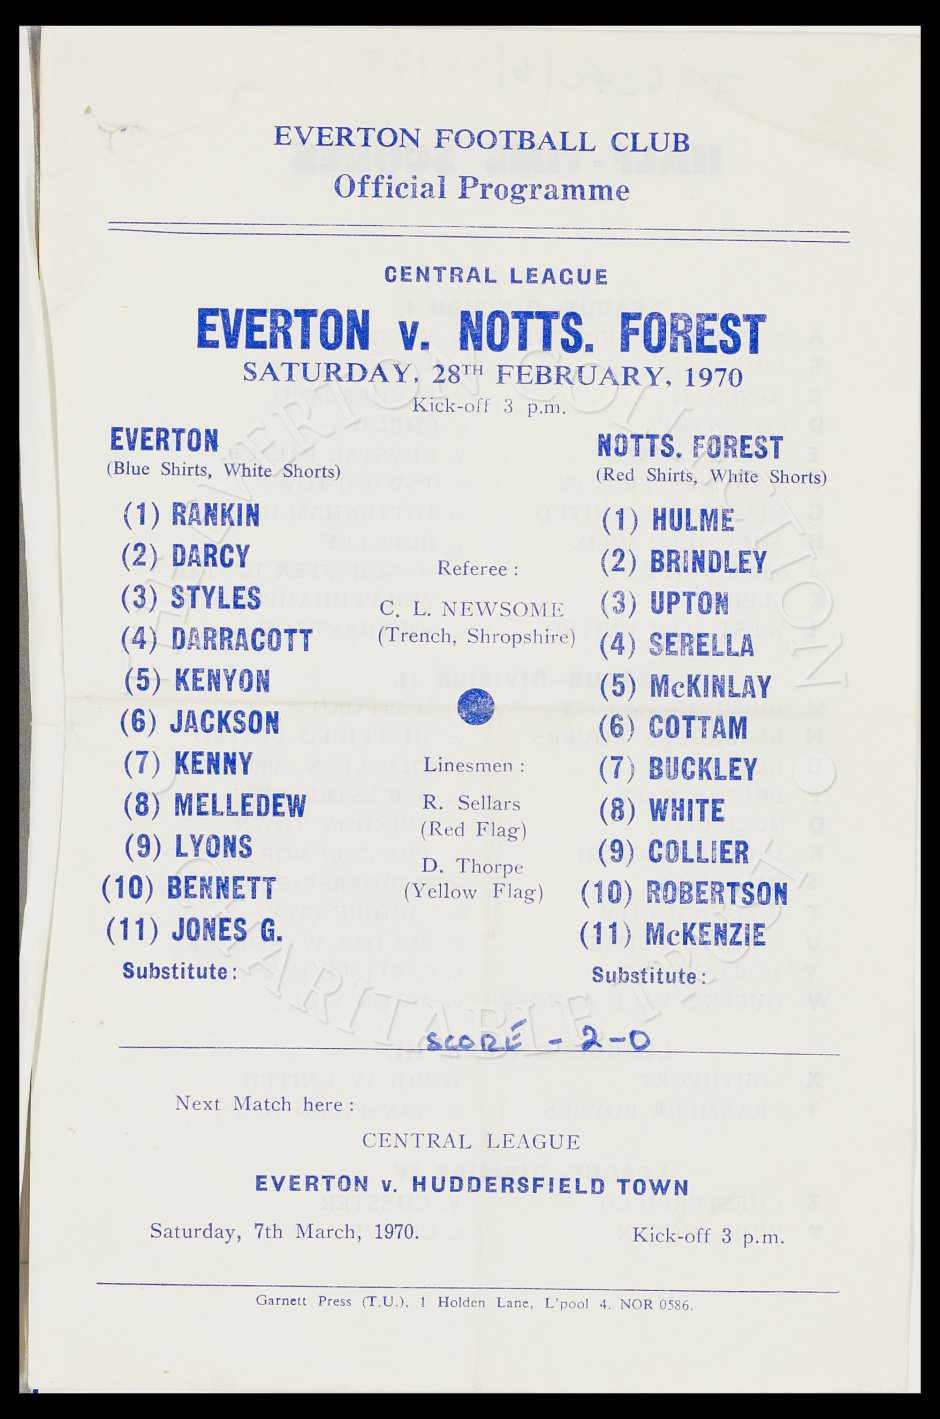 EVERTON FOOTBALL CLUB
Official Programme
CENTRAL LEAGUE
EVERTON v. NOTTS. FOREST
SATURDAY, 28TH FEBRUARY, 1970
Kick-off 3 p.m.
EVERTON
(Blue Shirts, White Shorts)
(1) RANKIN
(2) DARCY
(3) STYLES
(4) DARRACOTT
(5) KENYON
(6) JACKSON
(7) KENNY
(8) MELLEDEW
(9) LYONS
(10) BENNETT
(11) JONES G.
Substitute:
Referee:
C. L. NEWSOME
(Trench, Shropshire)
Linesmen:
R. Sellars
(Red Flag)
D. Thorpe
(Yellow Flag)
NOTTS. FOREST
(Red Shirts, White Shorts)
(1) HULME
(2) BRINDLEY
(3) UPTON
(4) SERELLA
(5) McKINLAY
(6) COTTAM
(7) BUCKLEY
(8) WHITE
(9) COLLIER
(10) ROBERTSON
(11) McKENZIE
Substitute:
SCORE - 2-0
Next Match here:
CENTRAL LEAGUE
EVERTON v. HUDDERSFIELD TOWN
Saturday, 7th March, 1970. Kick-off 3 p.m.
Garnett Press (T.U.), 1 Holden Lane, L'pool 4. NOR 0586.
THE EVERTON COLLECTION
CHARITABLE TRUST